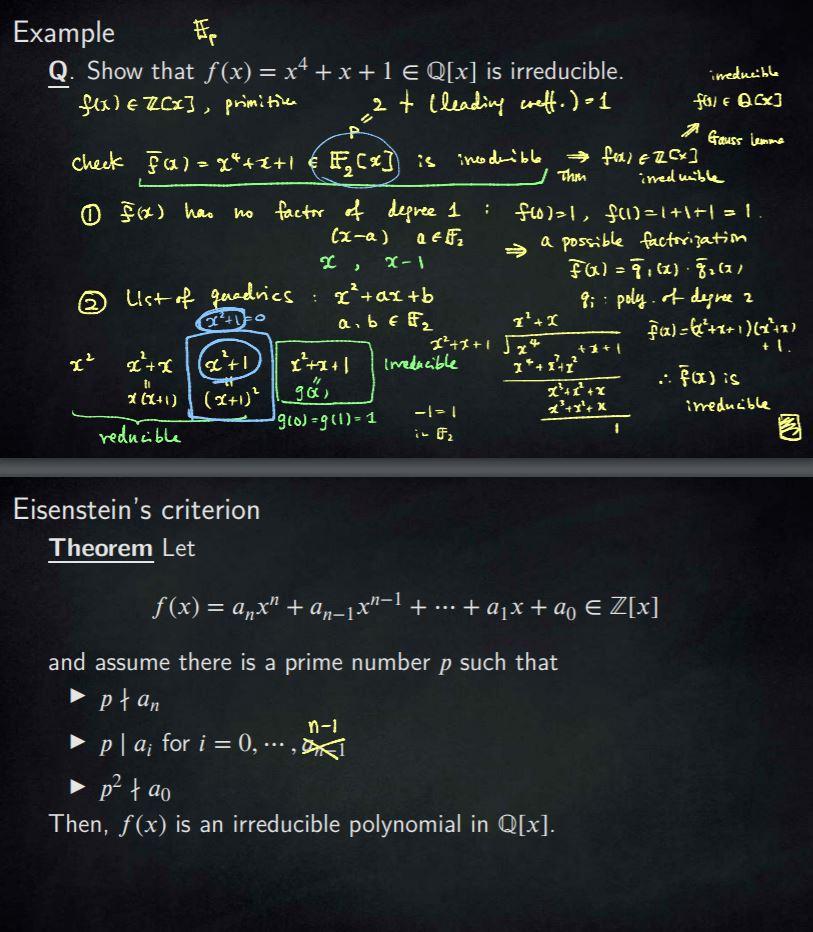 Example 𝔽_p
Q. Show that f(x) = x⁴ + x + 1 ∈ ℚ[x] is irreducible.
f(x) ∈ ℤ[x], primitive
2 ∤ (leading coeff.) = 1
p
irreducible
f(x) ∈ ℚ[x]
⇗ Gauss lemma
check f̄(x) = x⁴+x+1 ∈ 𝔽₂[x] is irreducible ⇒ f(x) ∈ ℤ[x]
Thm irreducible
① f̄(x) has no factor of degree 1 : f(0)=1, f(1)=1+1+1=1.
(x-a) a ∈ 𝔽₂
x , x-1
⇒ a possible factorization
f̄(x) = q̄₁(x) · q̄₂(x)
qᵢ : poly. of degree 2
② List of quadrics : x²+ax+b
a, b ∈ 𝔽₂
x²+1=0
x² x²+x x²+1 x²+x+1 irreducible
x(x+1) (x+1)² g(x)
g(0)=g(1)=1
reducible
-1=1
in 𝔽₂
x²+x
x²+x+1 x⁴ +x+1
x⁴+x³+x²
x³+x²+x
x³+x²+x
1
f̄(x)=(x²+x+1)(x²+x)
+1.
∴ f̄(x) is
irreducible
Eisenstein's criterion
Theorem Let
f(x) = aₙxⁿ + aₙ₋₁xⁿ⁻¹ + ⋯ + a₁x + a₀ ∈ ℤ[x]
and assume there is a prime number p such that
▶ p ∤ aₙ
n-1
▶ p | aᵢ for i = 0, ⋯ , aₙ₋₁
▶ p² ∤ a₀
Then, f(x) is an irreducible polynomial in ℚ[x].